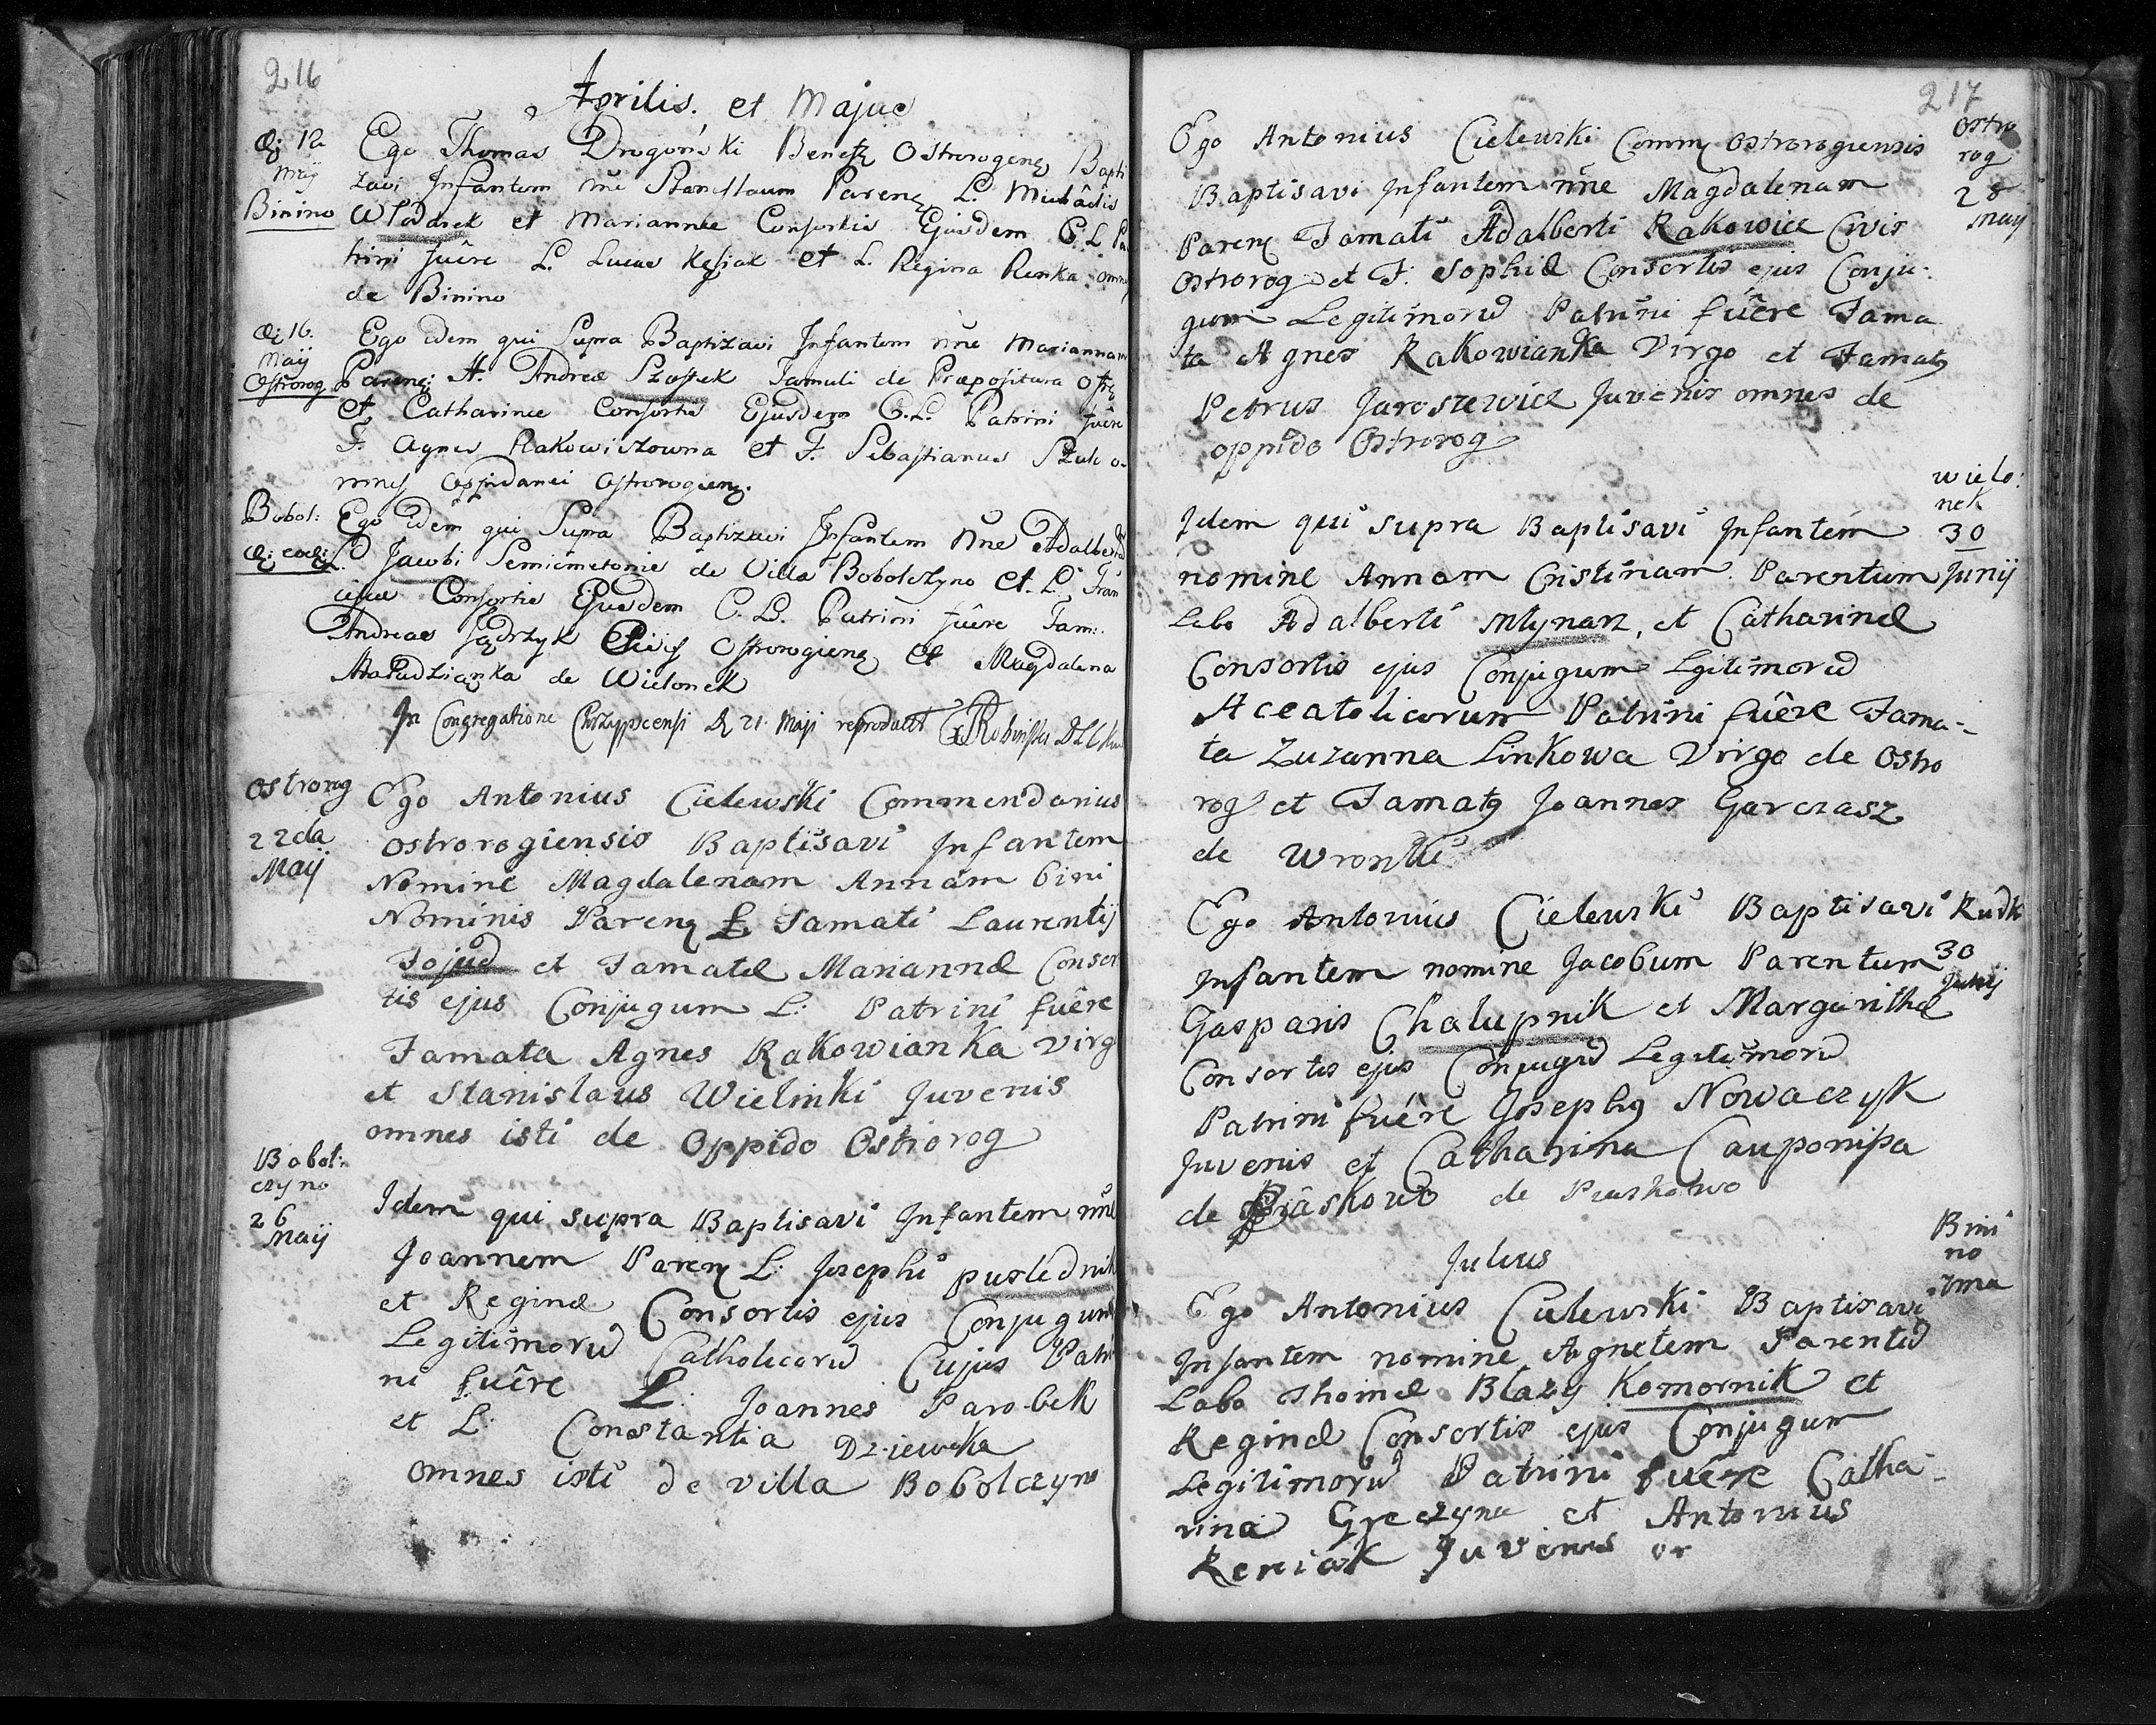 216
Aprilis. et Majus
D: 12 Ego Thomas Drogoński Benef Ostrorogen Bapti
Maij zavi Infantem nne Stanislaum Paren L. Michaelis
Binino Wlodarek et Mariannae Consortis Ejusdem C. L. Pa
trini fuêre L. Lucas Kęsiak et L. Regina Renka. omn
de Binino
D: 16. Ego idem qui Supra Baptizavi Infantem nne Mariannam
Maij
Ostrorog Paren: H. Andreae Szostek Famuli de Praepositura Ostr
et Catharinae Consortis Ejusdem C. L. Patrini fuêre
F. Agnes Rakowiczowna et F. Sebastianus Szulc o-
mnes Oppidanei Ostrorogien.
Bobol: Ego idem qui Supra Baptizavi Infantem Nne Adalber
D: ead: L. Jacobi Semicmetonis de Villa Bobolczyno et L. Fran
ciscae Consortis Ejusdem C. L. Patrini fuêre Fam:
Andreas Jędrzyk Civis Ostrorogien et Magdalena
de Wielonek
In Congregatione D 21. Maji
Ostrorog Ego Antonius Cielewski Commendarius
22da Ostrorogiensis Baptisavi Infantem
Maij Nomine Magdalenam Annam bini
Nominis Paren L. Famati Laurentij
Fojud et Famatae Mariannae Consor
tis ejus Conjugum L. Patrini fuêre
Famata Agnes Rakowianka virg
et Stanislaus Wielinki Juvenis
omnes isti de Oppido Ostrorog
Bobol:
czyno
26 Idem qui supra Baptisavi Infantem nne
Maij
Joannem Paren L. Josephi poslednik
et Reginae Consortis ejus Conjugum
Legitimorū Catholicorū Cujus Patri
ni fuêre L. Joannes Parobek
et L. Constantia Dziewka
omnes isti de villa Bobolczyno
217
Ego Antonius Cielewski Comm Ostrorogiensis Ostro
rog
Baptisavi Infantem nne Magdalenam 28
Paren Famati Adalberti Rakowicz Civis Maij
Ostrorog et F. Sophiae Consortis ejus Conju:
gum Legitimorū Patrini fuêre Fama
ta Agnes Rakowianka Virgo et Famatq
Petrus Jaroszewicz Juvenis omnes de
oppido Ostrorog
Wielo:
nek
Idem qui supra Baptisavi Infantem 30
nomine Annam Cristinam. Parentum Junij
Labo Adalberti Mlynarz, et Catharinae
Consortis ejus Conjugum Lgitimorū
Acatolicorum Patrini fuêre Fama-
ta Zuzanna Linkowa Virgo de Ostro
rog et Famatq Joannes Garczasz
de Wronki
Ego Antonius Cielewski Baptisavi Rudk
Infantem nomine Jacobum Parentum 30
Junij
Gasparis Chalupnik et Margarithae
Consortis ejus Conjugū Legitimorū
Patrini fuêre Josephq Nowaczyk
Juvenis et Catharina Cauponissa
de Piaskowo de Piaskowo
Julius
Bini
no
Ego Antonius Cielewski Baptisavi
Infantem nomine Agnetem Parentū
Labo Thomae Blazy Komornik et
Reginae Consortis ejus Conjugum
Legitimorū Patrini fuêre Catha-
rina Greczyna et Antonius
Reniak Juvenis